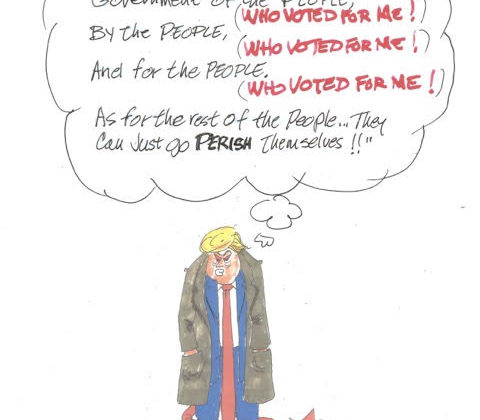 Government of the PEOPLE, (WHO VOTED FOR ME!)
By the PEOPLE, (WHO VOTED FOR ME!)
And for the PEOPLE. (WHO VOTED FOR ME!)
As for the rest of the People... They
Can Just go PERISH Themselves!!"